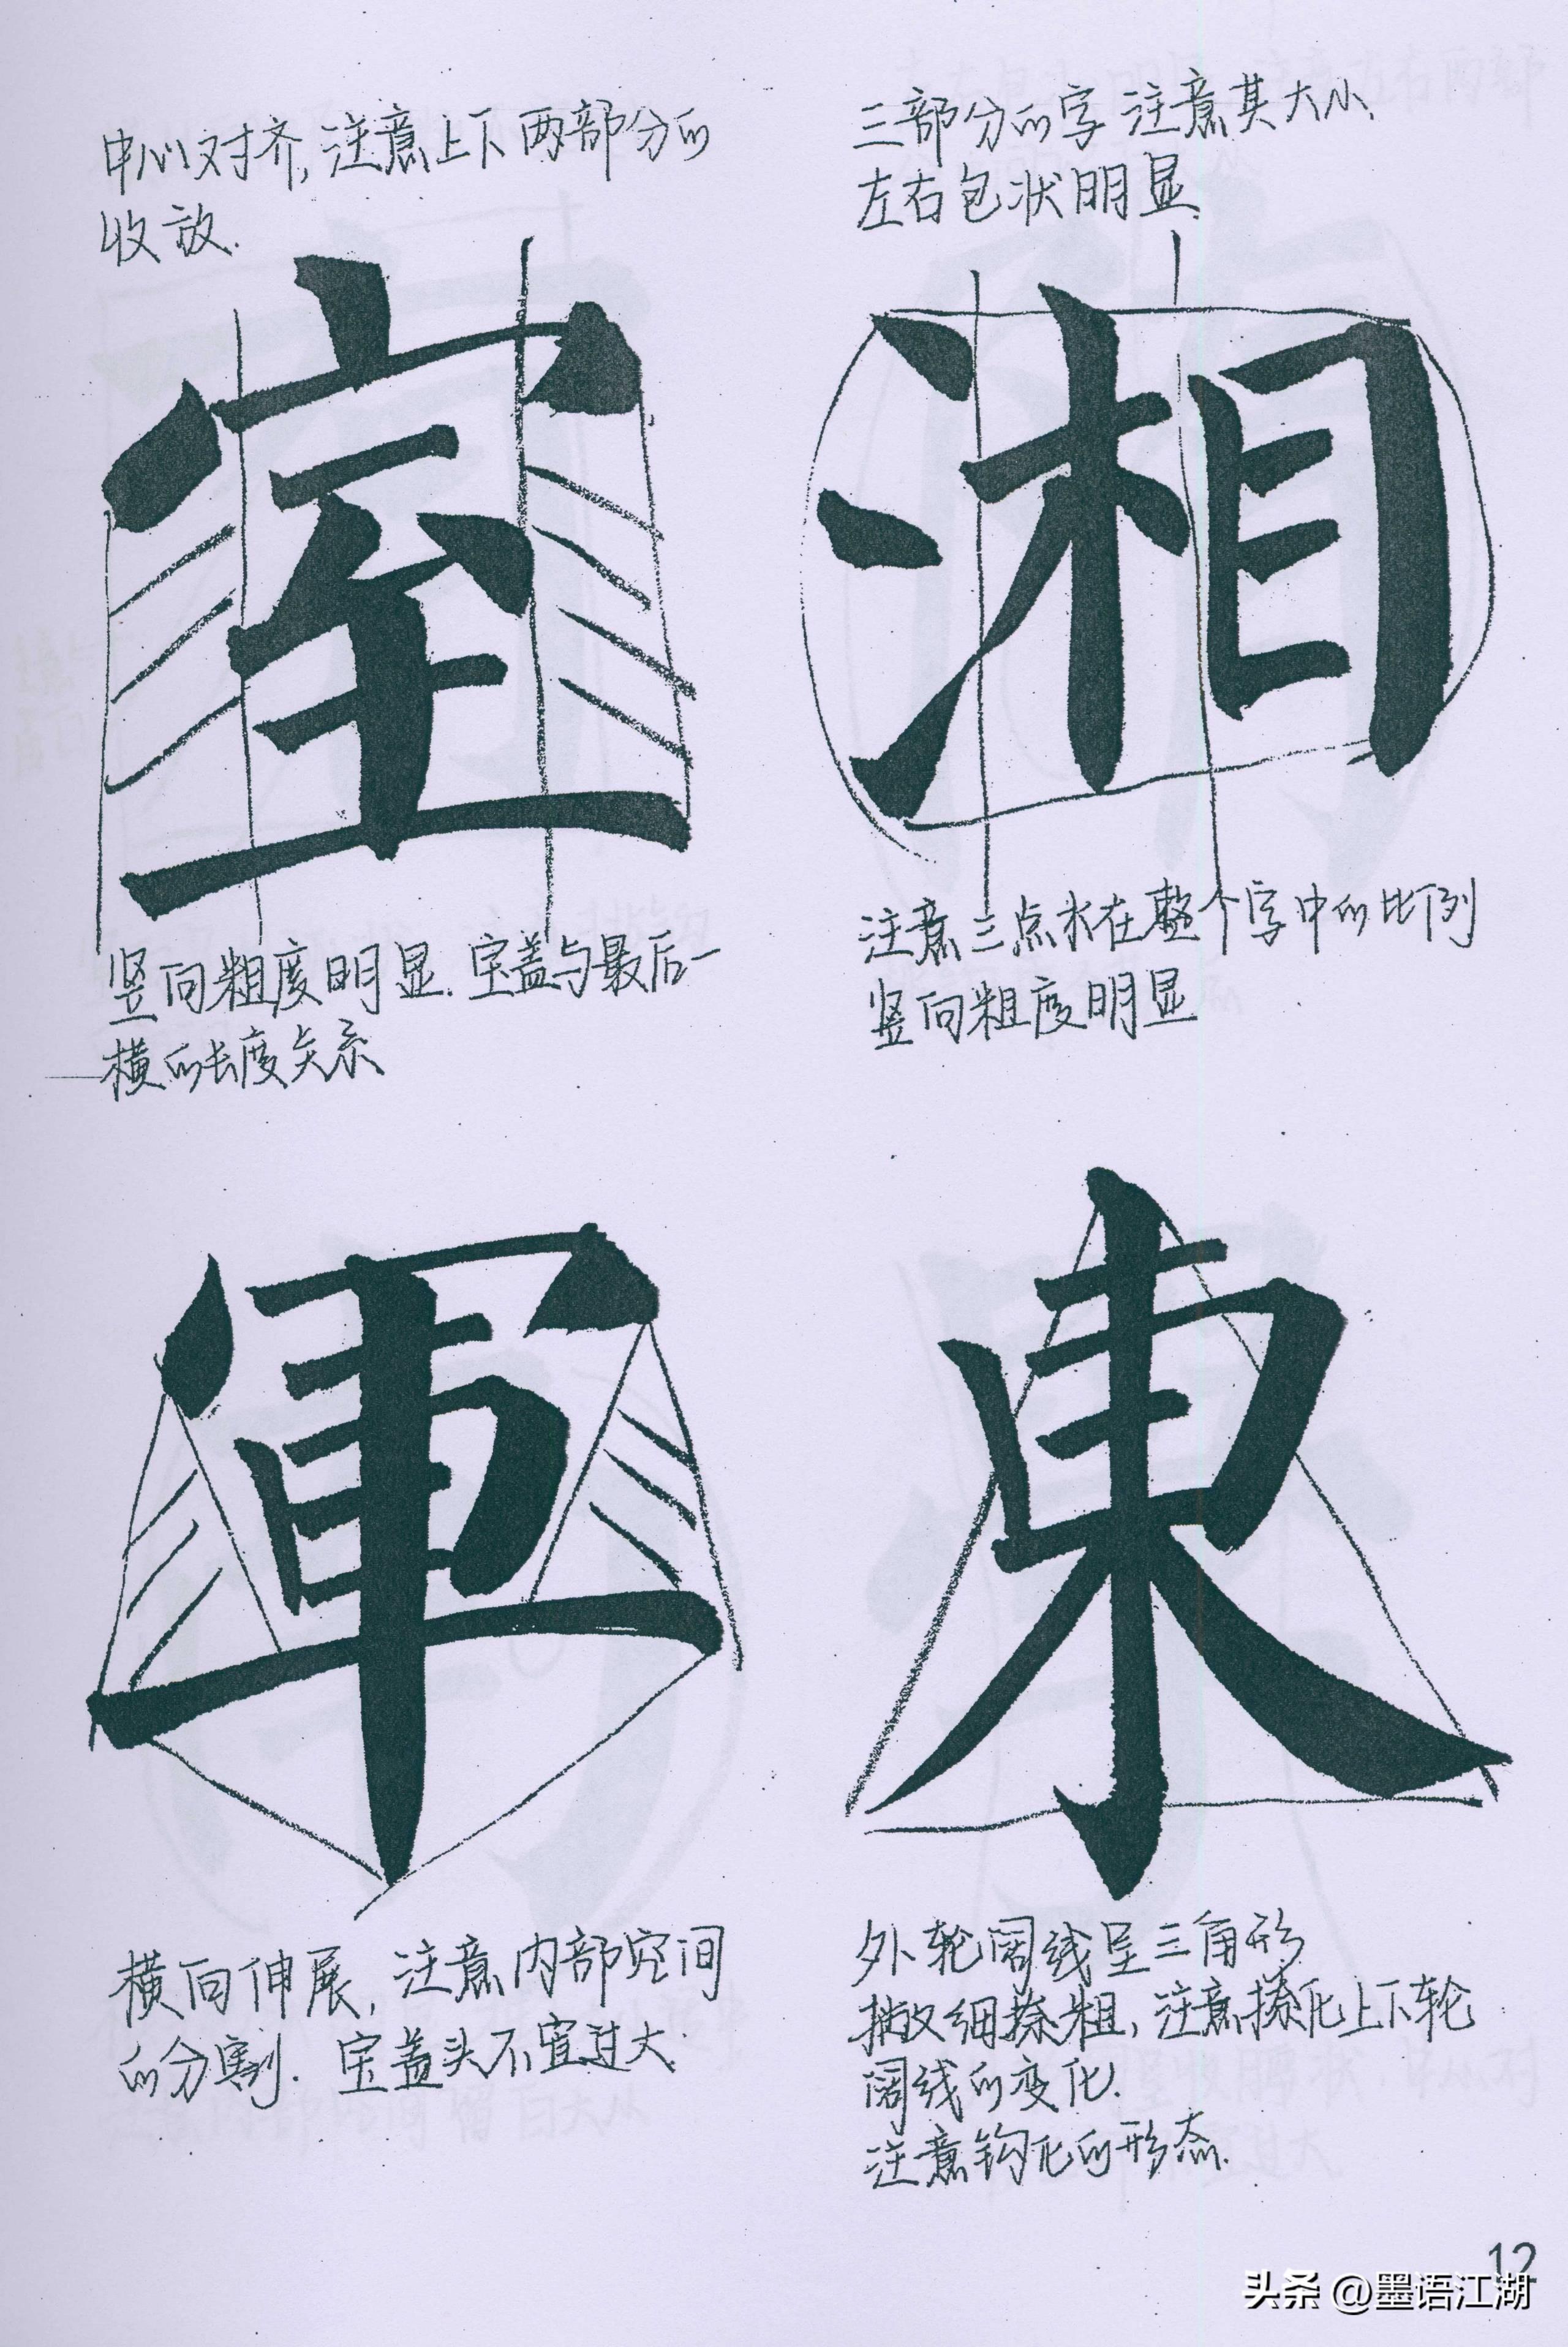 中心对齐,注意上下两部分的
收放.
室
竖向粗度明显.宝盖与最后一
横的长度关系
三部分的字 注意其大小、
左右包状明显.
湘
注意三点水在整个字中的比例
竖向粗度明显
軍
横向伸展,注意内部空间
的分割.宝盖头不宜过大.
東
外轮阔线呈三角形
撇细捺粗,注意捺化上下轮
阔线的变化.
注意钩化的形态.
12
头条 @墨语江湖